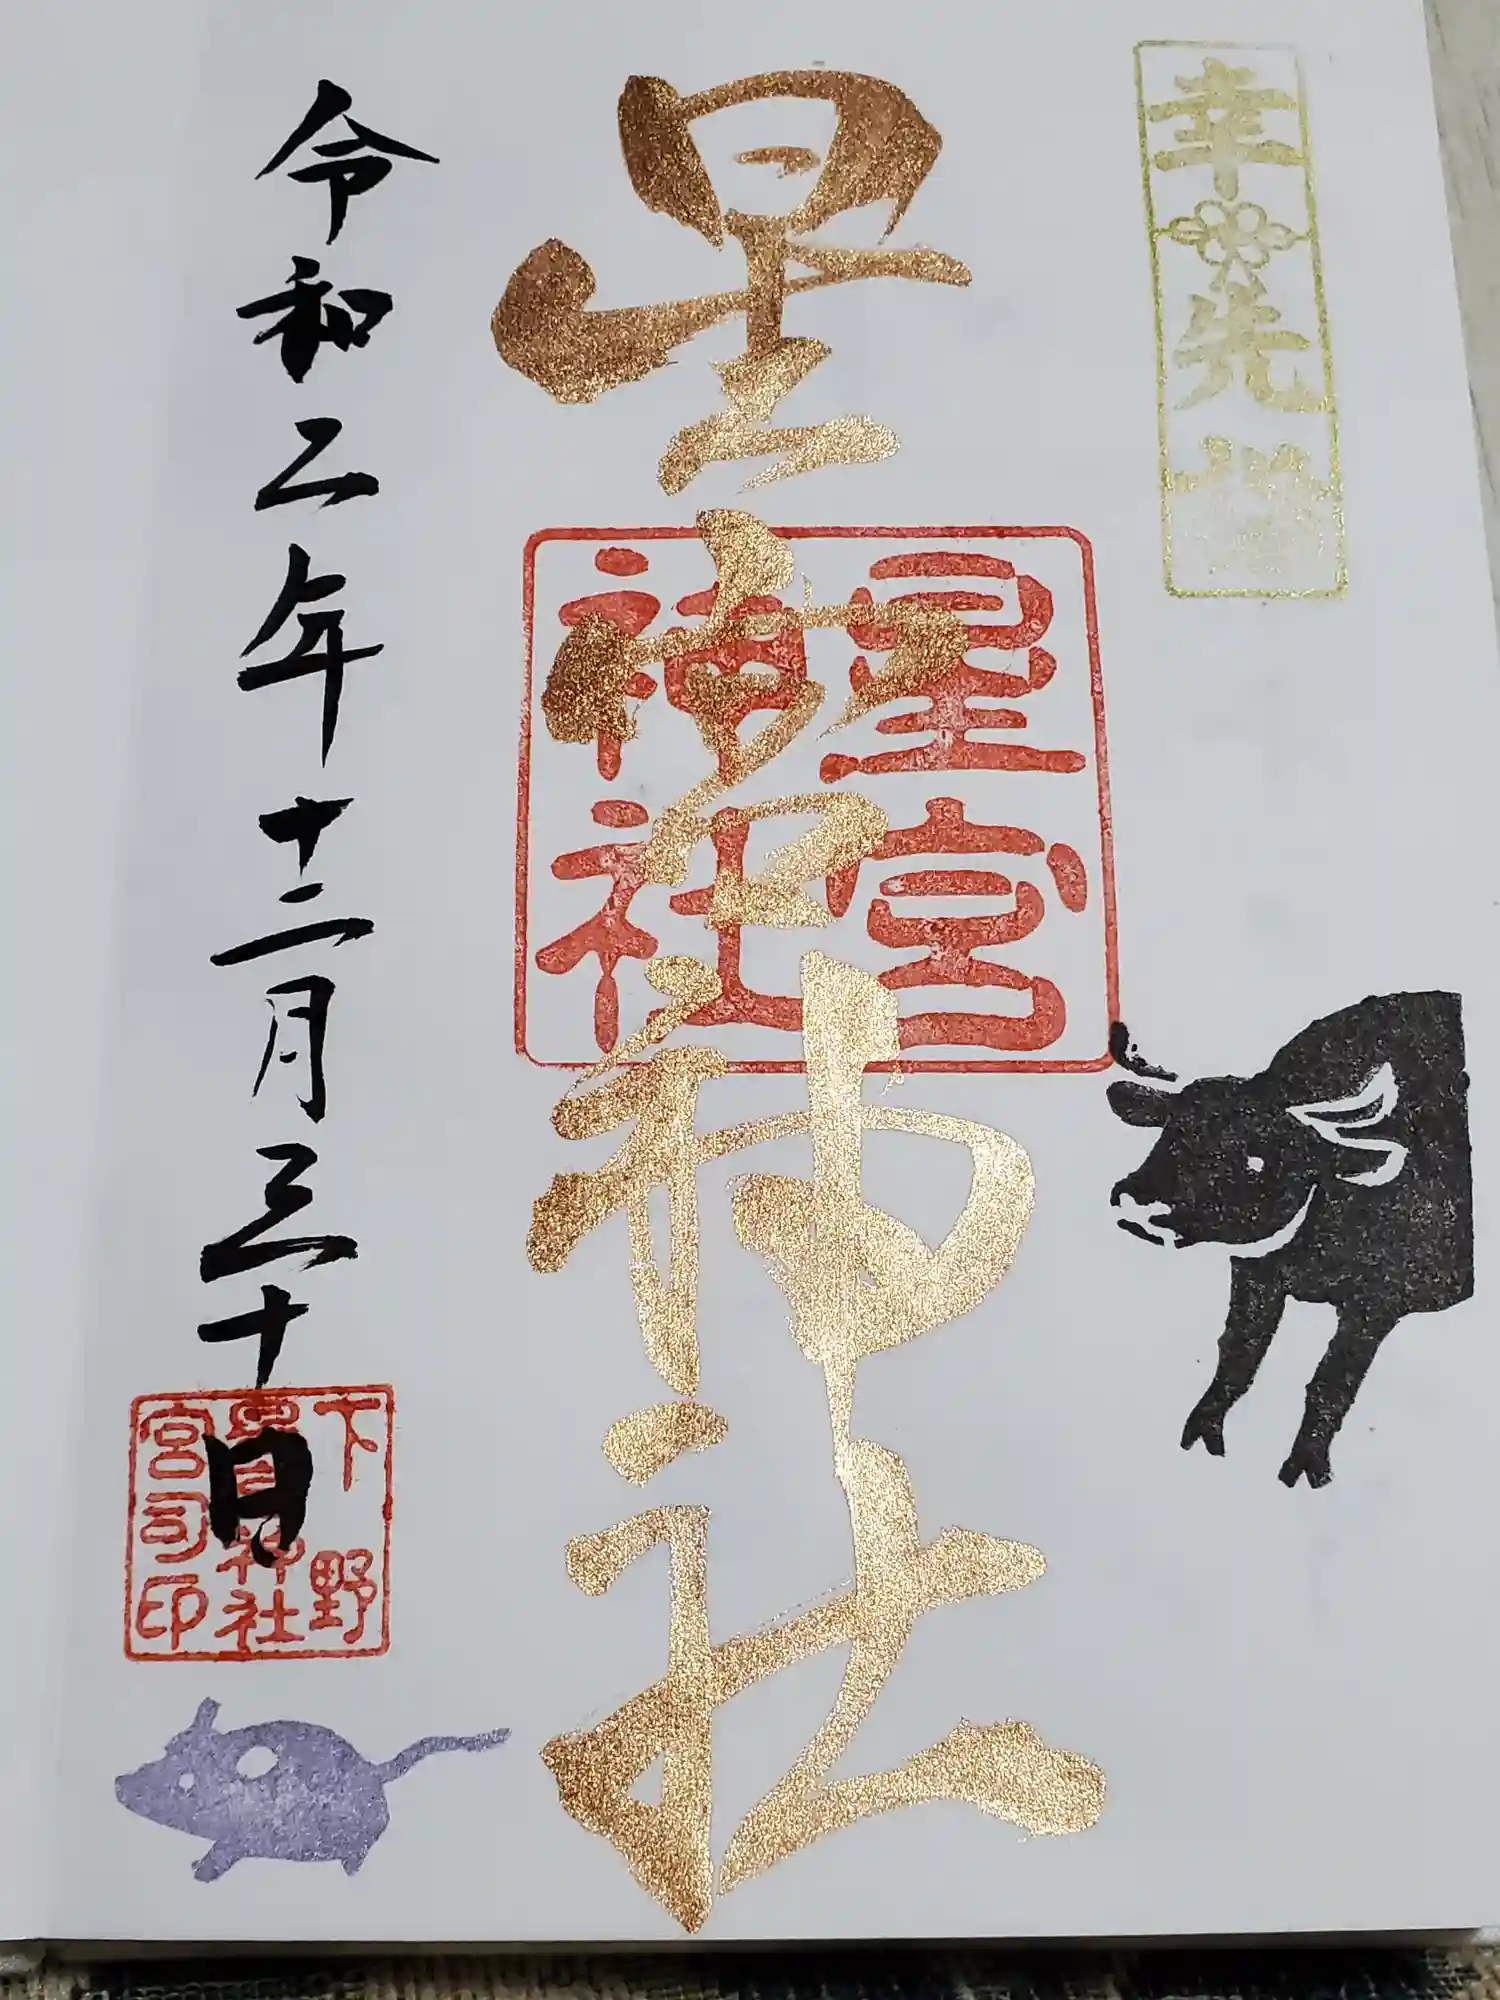 幸先詣
星宮神社
星宮
神社
令和二年十二月三十日
下野
星宮神社
宮司印